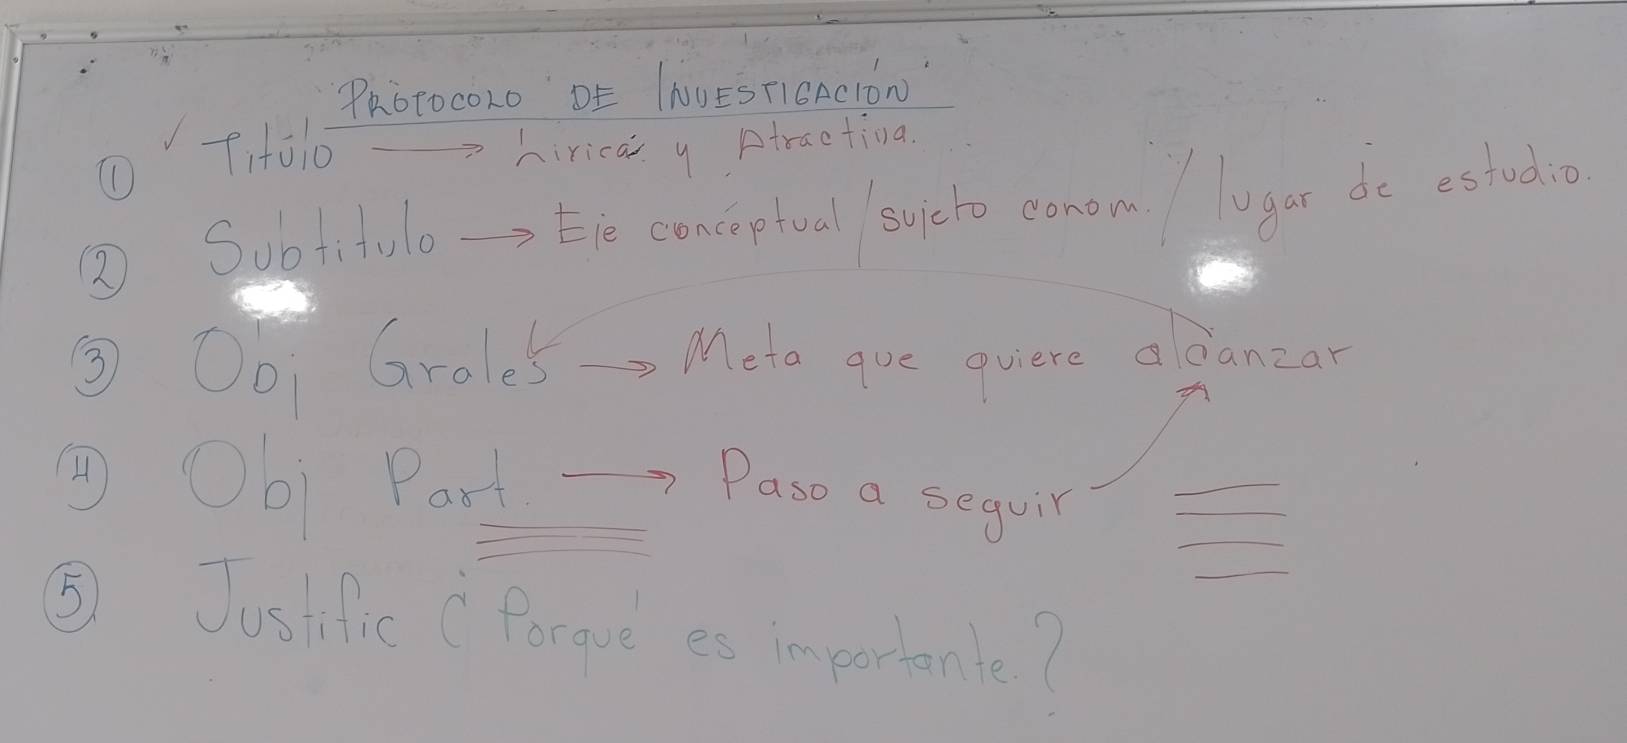 PROTOCOLO DE INVESTIGACIÓN
① ✓ Título → Lirica y Atractiva.
② Subtitulo → Eje conceptual / sujeto conom. / lugar de estudio.
③ Obj Grales → Meta que quiere alcanzar
④ Obj Part. → Paso a seguir
⑤ Justific ¿Porqué es importante?